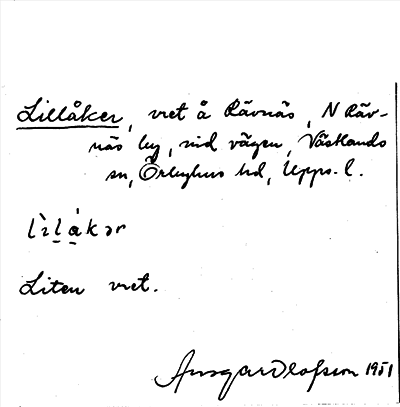 Lillåker, vret å Rävnäs, N Räv-
näs by, vid vägen, Västlands
sn, Örbyhus hd, Upps. l.
lìlå̀kər
Liten vret.
Ansgar Olofsson 1951